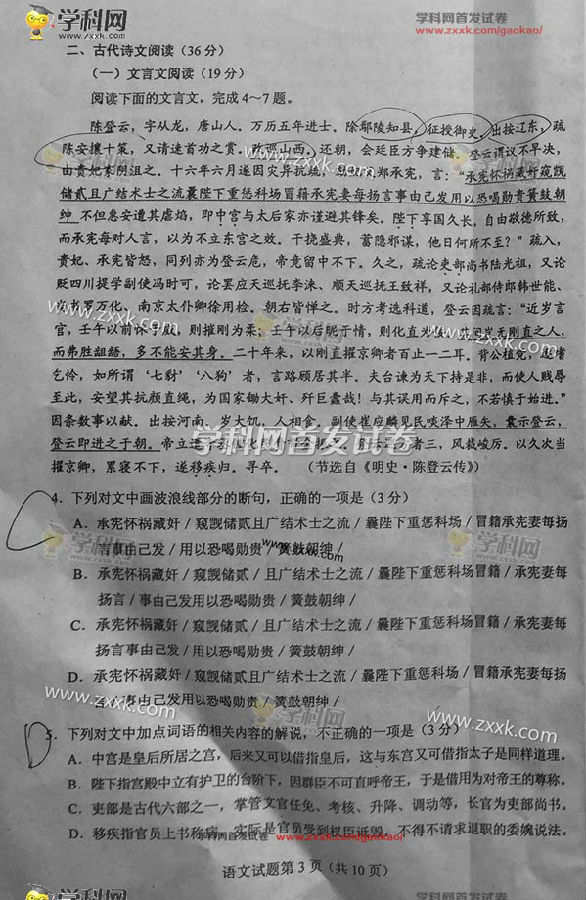 学科网
www.zxxk.com
学科网首发试卷
www.zxxk.com/gaokao/
二、古代诗文阅读（36分）
（一）文言文阅读（19分）
阅读下面的文言文，完成4～7题。
陈登云，字从龙，唐山人。万历五年进士。除鄢陵知县，征授御史。出按辽东，疏
陈安攘十策，又请速首功之赏。改巡山西。还朝，会廷臣方争建储，登云谓议不早决，
由贵妃家阴沮之。十六年六月遂因灾异抗疏，劾妃父郑承宪，言："承宪怀祸藏奸窥觊
储贰且广结术士之流曩陛下重惩科场冒籍承宪妻每扬言事由己发用以恐喝勋贵簧鼓朝
绅 不但惠安遭其虐焰，即中宫与太后家亦谨避其锋矣。陛下享国久长，自由敬德所致，
而承宪每对人言，以为不立东宫之效。干挠盛典，蓄隐邪谋，他日何所不至？"疏入，
贵妃、承宪皆怒，同列亦为登云危，帝竟留中不下。久之，疏论吏部尚书陆光祖，又论
贬四川提学副使冯时可，论罢应天巡抚李涞、顺天巡抚王致祥，又论礼部侍郎韩世能、
尚书罗万化、南京太仆卿徐用检。朝右皆惮之。时方考选科道，登云因疏言："近岁言
官，壬午以前怵于威，则摧刚为柔；壬午以后昵于情，则化直为佞。其间岂无刚直之人，
而弗胜龃龉，多不能安其身。二十年来，以刚直擢京卿者百止一二耳。背公植党，逐嗜
乞怜，如所谓'七豺''八狗'者，言路顾居其半。夫台谏为天下持是非，而使人贱辱
至此，安望其抗颜直绳，为国家锄大奸、歼巨蠹哉！与其误用而斥之，不若慎于始进。"
因条数事以献。出按河南。岁大饥，人相食。副使崔应麟见民啖泽中雁矢，囊示登云，
登云即进之于朝。帝立遣
者三，风裁峻厉。以久次当
擢京卿，累寝不下，遂移疾归。寻卒。 （节选自《明史·陈登云传》）
4．下列对文中画波浪线部分的断句，正确的一项是（3分）
A．承宪怀祸藏奸／窥觊储贰且广结术士之流／曩陛下重惩科场／冒籍承宪妻每扬
言事由己发／用以恐喝勋贵／簧鼓朝绅／
B．承宪怀祸藏奸／窥觊储贰／且广结术士之流／曩陛下重惩科场冒籍／承宪妻每
扬言／事由己发用以恐喝勋贵／簧鼓朝绅／
C．承宪怀祸藏奸／窥觊储贰／且广结术士之流／曩陛下重惩科场冒籍／承宪妻每
扬言事由己发／用以恐喝勋贵／簧鼓朝绅／
D．承宪怀祸藏奸／窥觊储贰且广结术士之流／曩陛下重惩科场／冒籍承宪妻每扬
言／事由己发用以恐喝勋贵／簧鼓朝绅／
5．下列对文中加点词语的相关内容的解说，不正确的一项是（3分）
A．中宫是皇后所居之宫，后来又可以借指皇后，这与东宫又可借指太子是同样道理。
B．陛下指宫殿中立有护卫的台阶下，因群臣不可直呼帝王，于是借用为对帝王的尊称。
C．吏部是古代六部之一，掌管文官任免、考核、升降、调动等，长官为吏部尚书。
D．移疾指官员上书称病，实际是官员受到权臣诋毁，不得不请求退职的委婉说法。
语文试题第3页（共10页）